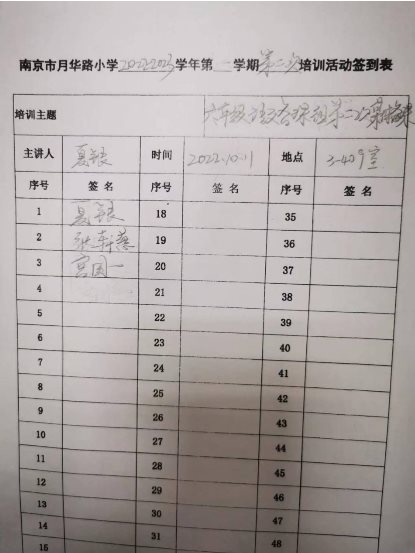 南京市月华路小学2022-2023学年第一学期第二次培训活动签到表
培训主题 六年级语文备课组第二次
主讲人 夏银 时间 2022.10.11 地点 3-409室
序号 签名 序号 签名 序号 签名
1 夏银 18 35
2 19 36
3 宫国一 20 37
4 21 38
5 22 39
6 23 40
7 24 41
8 25 42
9 26 43
10 27 44
11 28 45
12 29 46
13 30 47
14 31 48
15